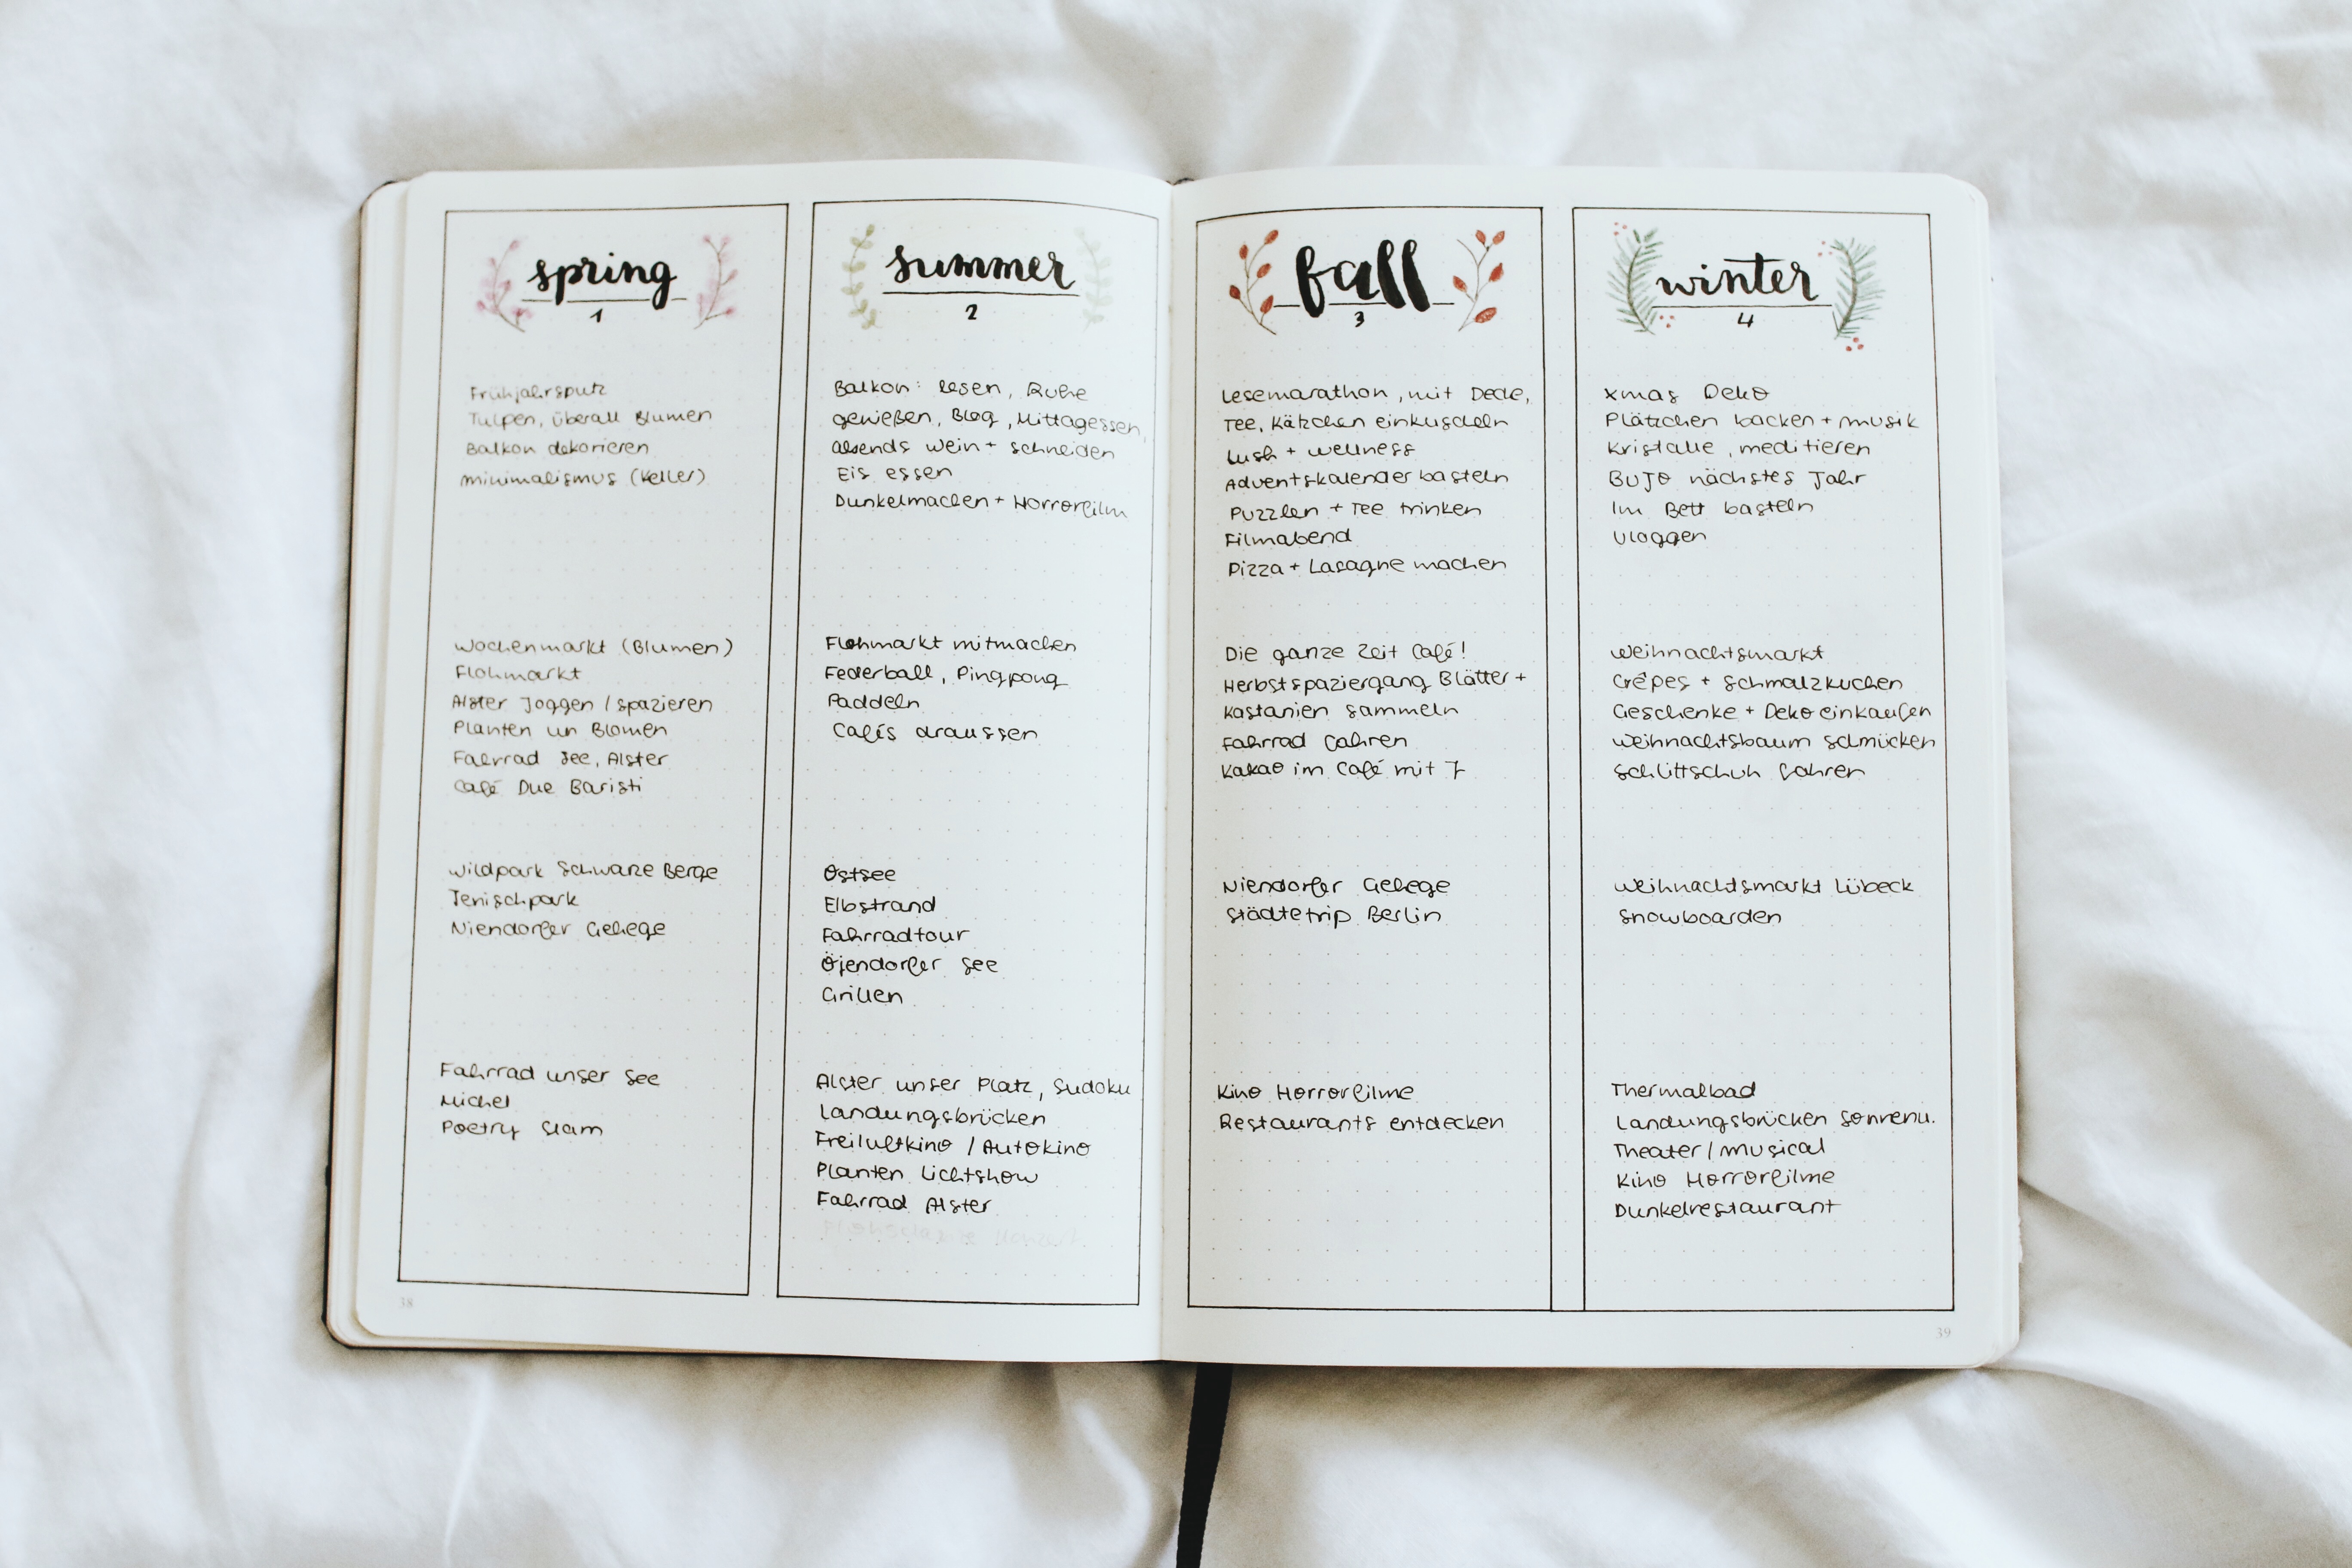 spring
1
Frühjahrsputz
Tulpen, überall Blumen
Balkon dekorieren
minimalismus (Keller)
Wochenmarkt (Blumen)
Flohmarkt
Alster Joggen / spazieren
Planten un Blomen
Fahrrad See, Alster
Café Due Baristi
Wildpark Schwarze Berge
Jenischpark
Niendorfer Gehege
Fahrrad unser See
Michel
Poetry Slam
38
summer
2
Balkon: lesen, Ruhe
genießen, Blog, Mittagessen,
abends Wein + schneiden
Eis essen
Dunkelmachen + Horrorfilm
Flohmarkt mitmachen
Federball, Pingpong
Paddeln
Cafés draussen
Ostsee
Elbstrand
Fahrradtour
Öjendorfer See
Grillen
Alster unser Platz, Sudoku
Landungsbrücken
Freiluftkino / Autokino
Planten Lichtshow
Fahrrad Alster
fall
3
Lesemarathon, mit Decke,
Tee, Kätzchen einkuscheln
Lush + wellness
Adventskalender basteln
Puzzlen + Tee trinken
Filmabend
Pizza + Lasagne machen
Die ganze Zeit Café!
Herbstspaziergang Blätter +
Kastanien sammeln
Fahrrad fahren
Kakao im Café mit J
Niendorfer Gehege
Städtetrip Berlin
Kino Horrorfilme
Restaurants entdecken
winter
4
xmas Deko
Plätzchen backen + musik
Kristalle, meditieren
BUJO nächstes Jahr
Im Bett basteln
Vloggen
Weihnachtsmarkt
Crêpes + Schmalzkuchen
Geschenke + Deko einkaufen
Weihnachtsbaum schmücken
Schlittschuh fahren
Weihnachtsmarkt Lübeck
Snowboarden
Thermalbad
Landungsbrücken Sonnenu.
Theater / musical
Kino Horrorfilme
Dunkelrestaurant
39